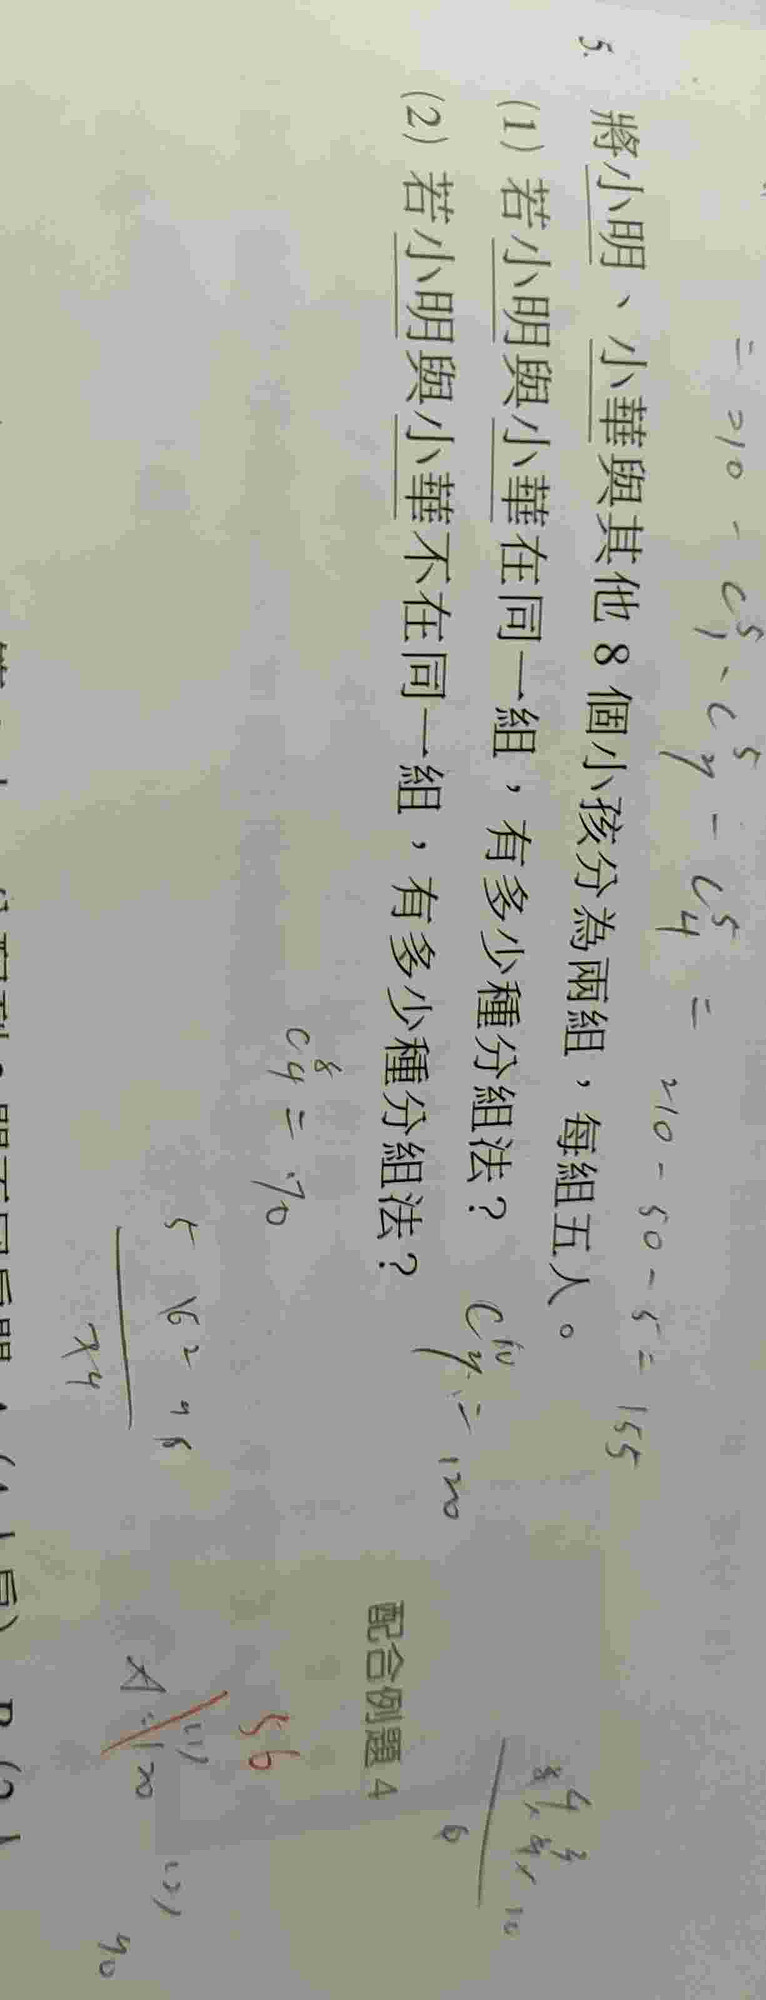 = 210 - C⁵₁ · C⁵₂ - C⁵₄ = 210 - 50 - 5 = 155
5. 將小明、小華與其他 8 個小孩分為兩組，每組五人。
(1) 若小明與小華在同一組，有多少種分組法？
C¹⁰₃ = 120
(2) 若小明與小華不在同一組，有多少種分組法？
C⁸₄ = 70
配合例題 4
56
A: (1) 120 (2) 70